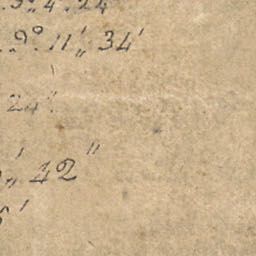 .3°.4'.24
.9°.11',, 34'
24'.
,,' 42"
6'